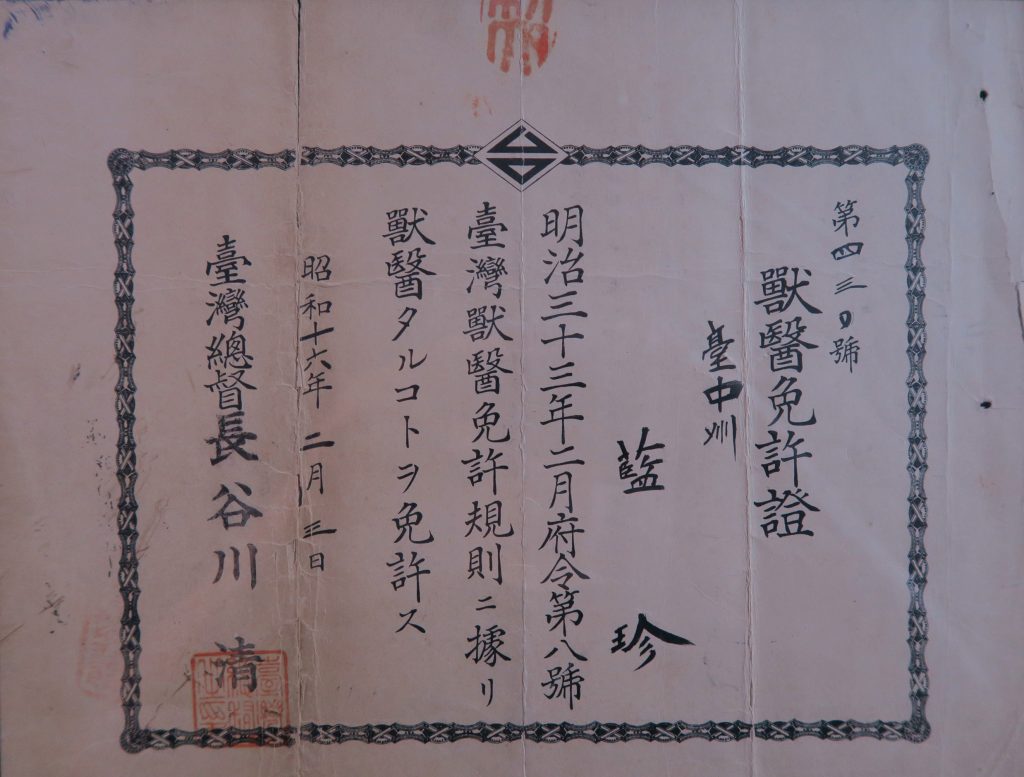 第四三〇號
獸醫免許證
臺中州
藍 珍
明治三十三年二月府令第八號
臺灣獸醫免許規則ニ據リ
獸醫タルコトヲ免許ス
昭和十六年 二月 三日
臺灣總督長谷川 清